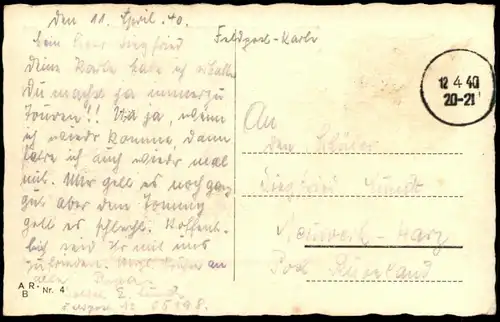 den 11. April. 40.
Mein lieber Siegfried
Deine Karte habe ich erhalten
Du machst ja immerzu
Touren!! Na ja, wenn
ich wieder komme, dann
fahre ich auch wieder mal
mit. Mir geht es noch ganz
gut aber dem Tommy
geht es schlecht. Hoffent-
lich seid Ihr mit uns
zufrieden. an
alle Papa
E.
05198.
Feldpost-Karte
12.4.40
20-21
An
den Schüler
Siegfried
Neuwerk-Harz
Post Rübeland
A R.
B
Nr. 4